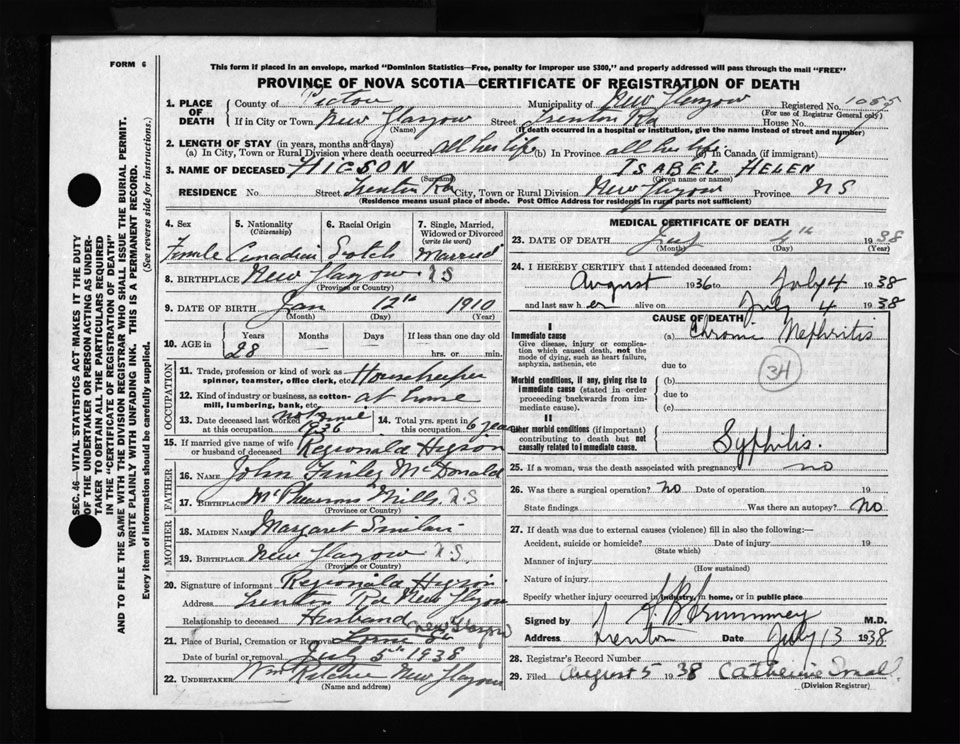 FORM 6
This form if placed in an envelope, marked "Dominion Statistics—Free, penalty for improper use $300," and properly addressed will pass through the mail "FREE"
PROVINCE OF NOVA SCOTIA—CERTIFICATE OF REGISTRATION OF DEATH
1. PLACE OF DEATH County of Pictou Municipality of New Glasgow Registered No. 1055
(For use of Registrar General only)
If in City or Town New Glasgow Street Trenton Rd House No.
(Name) (If death occurred in a hospital or institution, give the name instead of street and number)
2. LENGTH OF STAY (in years, months and days)
(a) In City, Town or Rural Division where death occurred all her life (b) In Province all her life (c) In Canada (if immigrant)
3. NAME OF DECEASED HIGSON ISABEL HELEN
(Surname) (Given name or names)
RESIDENCE No. Street Trenton Rd City, Town or Rural Division New Glasgow Province N S
(Residence means usual place of abode. Post Office Address for residents in rural parts not sufficient)
SEC. 46—VITAL STATISTICS ACT MAKES IT THE DUTY
OF THE UNDERTAKER OR PERSON ACTING AS UNDER-
TAKER TO OBTAIN ALL THE PARTICULARS REQUIRED
IN THE "CERTIFICATE OF REGISTRATION OF DEATH"
AND TO FILE THE SAME WITH THE DIVISION REGISTRAR WHO SHALL ISSUE THE BURIAL PERMIT.
WRITE PLAINLY WITH UNFADING INK. THIS IS A PERMANENT RECORD.
Every item of information should be carefully supplied. (See reverse side for instructions.)
4. Sex 5. Nationality (Citizenship) 6. Racial Origin 7. Single, Married, Widowed or Divorced (write the word)
Female Canadian Scotch Married
8. BIRTHPLACE New Glasgow N S
(Province or Country)
9. DATE OF BIRTH Jan 12th 1910
(Month) (Day) (Year)
10. AGE in Years Months Days If less than one day old
28 — hrs. or min.
OCCUPATION
11. Trade, profession or kind of work as spinner, teamster, office clerk, etc. Housekeeper
12. Kind of industry or business, as cotton-mill, lumbering, bank, etc. at home
13. Date deceased last worked at this occupation 1936 14. Total yrs. spent in this occupation 6 years
15. If married give name of wife or husband of deceased Reginald Higson
FATHER
16. Name John Finley McDonald
17. Birthplace Mills N.S
(Province or Country)
MOTHER
18. Maiden Name Margaret
19. BIRTHPLACE New Glasgow N.S.
(Province or Country)
20. Signature of informant Reginald Higson
Address Trenton Rd New Glasgow
Relationship to deceased Husband
21. Place of Burial, Cremation or Removal (New Glasgow)
Date of burial or removal July 5th 1938
22. UNDERTAKER Wm Ritchie New Glasgow
(Name and address)
MEDICAL CERTIFICATE OF DEATH
23. DATE OF DEATH July 4th 1938
(Month) (Day) (Year)
24. I HEREBY CERTIFY that I attended deceased from:
August 1936 to July 4 1938
and last saw her alive on July 4 1938
CAUSE OF DEATH
I
Immediate cause (a) Chronic Nephritis
Give disease, injury or complication which caused death, not the mode of dying, such as heart failure, asphyxia, asthenia, etc due to
34
Morbid conditions, if any, giving rise to immediate cause (stated in order proceeding backwards from immediate cause). (b)
due to
(c)
II
Other morbid conditions (if important) contributing to death but not causally related to immediate cause. Syphilis.
25. If a woman, was the death associated with pregnancy? no
26. Was there a surgical operation? No Date of operation 19
State findings Was there an autopsy? No
27. If death was due to external causes (violence) fill in also the following:—
Accident, suicide or homicide? Date of injury 19
(State which)
Manner of injury
(How sustained)
Nature of injury
Specify whether injury occurred in industry, in home, or in public place
Signed by M.D.
Address Trenton Date July 13 1938
28. Registrar's Record Number
29. Filed August 5 1938 Catherine
(Division Registrar)